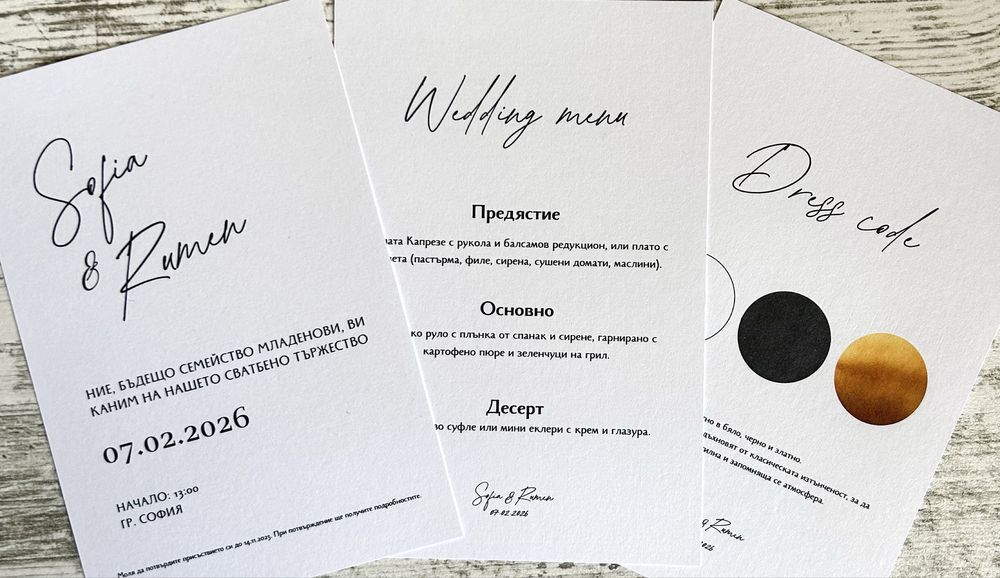 Sofia
& Rumen
НИЕ, БЪДЕЩО СЕМЕЙСТВО МЛАДЕНОВИ, ВИ
КАНИМ НА НАШЕТО СВАТБЕНО ТЪРЖЕСТВО
07.02.2026
НАЧАЛО: 13:00
ГР. СОФИЯ
Моля да потвърдите присъствието си до 14.11.2025. При потвърждение ще получите подробностите.
Wedding menu
Предястие
Капрезе с рукола и балсамов редукцион, или плато с
(пастърма, филе, сирена, сушени домати, маслини).
Основно
руло с плънка от спанак и сирене, гарнирано с
картофено пюре и зеленчуци на грил.
Десерт
суфле или мини еклери с крем и глазура.
Sofia & Rumen
07.02.2026
Dress code
в бяло, черно и златно.
от класическата изтънченост, за да
и запомняща се атмосфера.
& Rumen